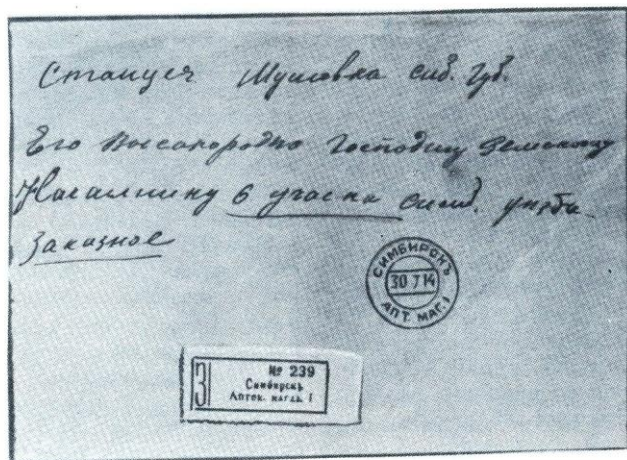 Станция Шумовка Сиб. губ.
Его Высокородию Господину Земскому
Начальнику 6 участка Симб. уезда
Заказное
СИМБИРСКЪ
30 7 14
АПТ. МАГ. 1
З
№ 239
Симбирскъ
Аптек. магаз. 1